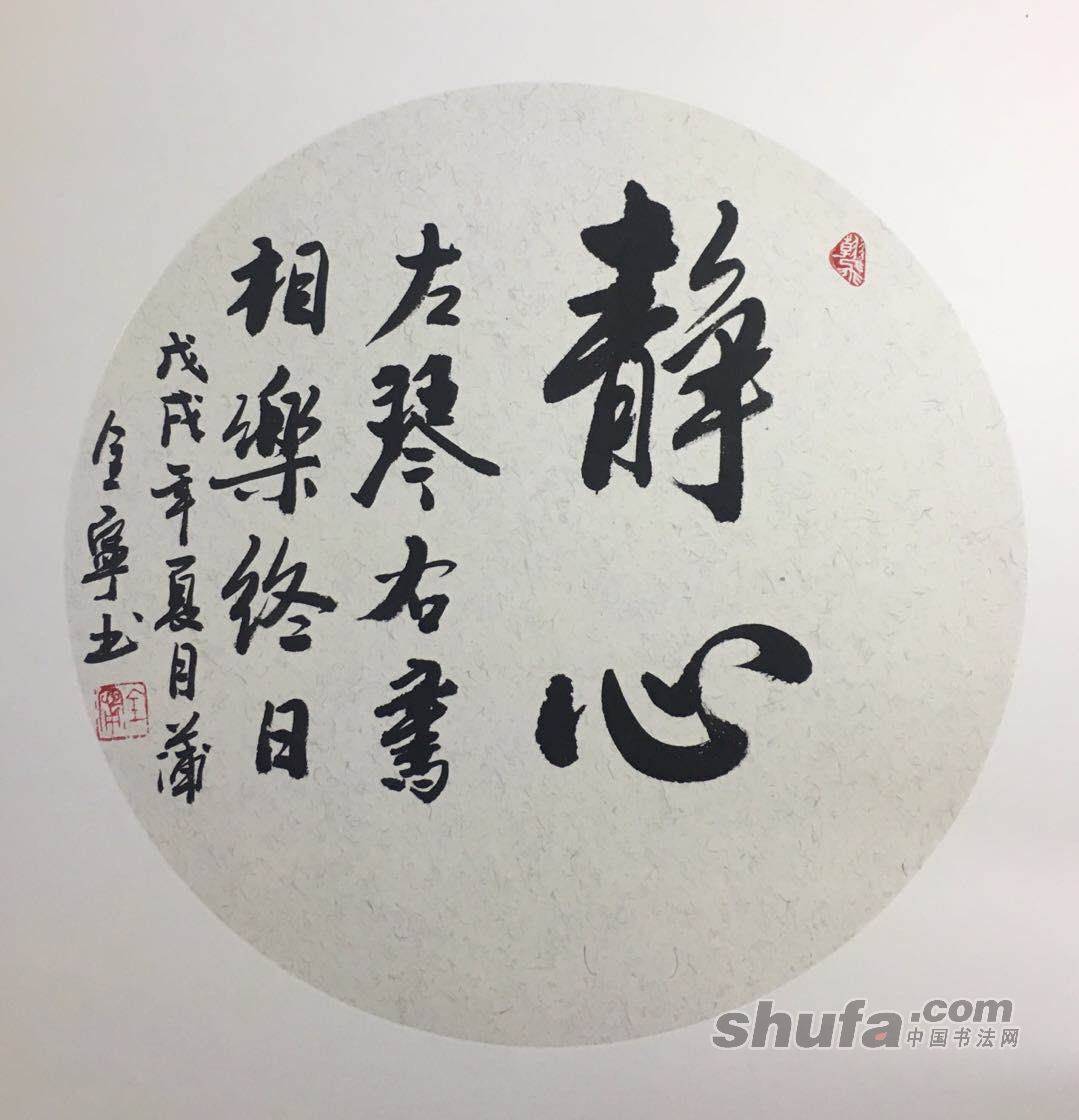 静心
左琴右書
相樂終日
戊戌年夏月蒲
全寧书
全寧
shufa.com
中国书法网